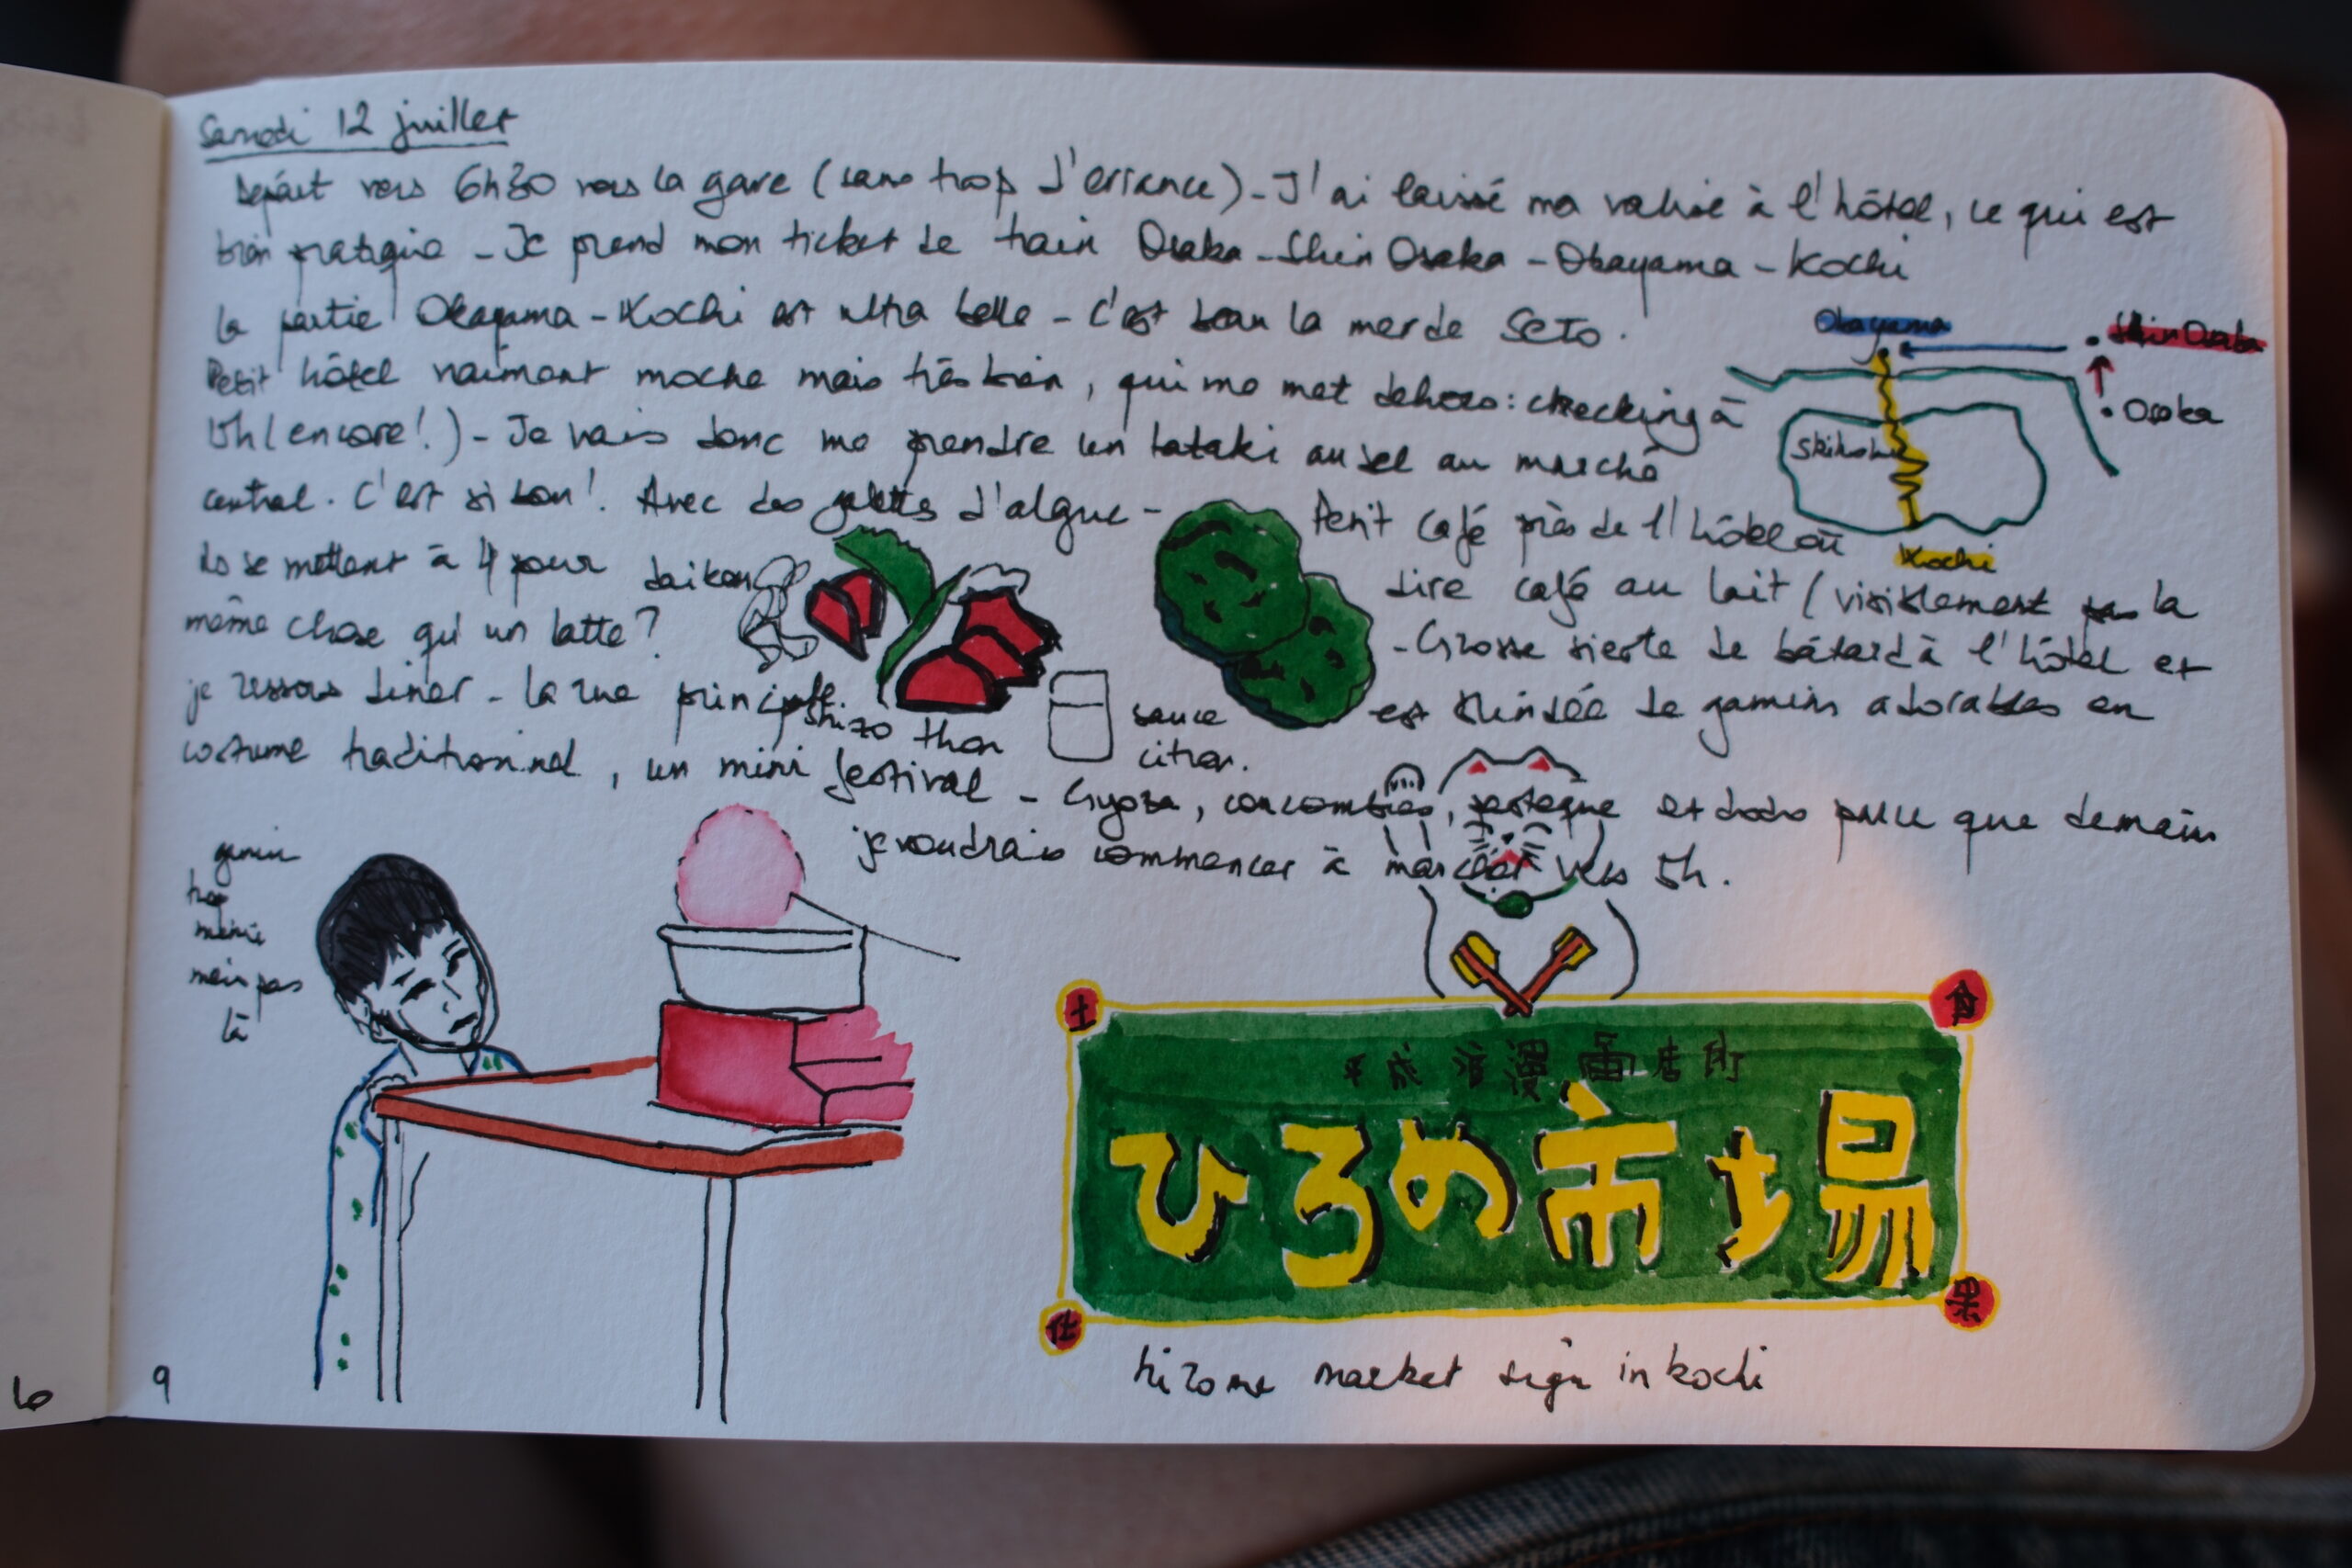 Samedi 12 juillet
Départ vers 6h30 vers la gare (sans trop d'errance) - J'ai laissé ma valise à l'hôtel, ce qui est
bien pratique - Je prend mon ticket de train Osaka - Shin Osaka - Okayama - Kochi
La partie Okayama - Kochi est ultra belle - C'est beau la mer de Seto.
Petit hôtel vraiment moche mais très bien, qui me met dehors : checking à
15h (encore!) - Je vais donc me prendre un tataki au sel au marché
central. C'est si bon! Avec des galettes d'algue -
Petit café près de l'hôtel où
ils se mettent à 4 pour
dire café au lait (visiblement la
même chose qu'un latte?
- Grosse sieste de bâtard à l'hôtel et
je ressors diner - la rue principale
est blindée de gamins adorables en
costume traditionnel, un mini festival - Gyoza, concombres, pastèque et dodo parce que demain
je voudrais commencer à marcher vers 5h.
Okayama
Shin Osaka
Osaka
Shikoku
Kochi
daikon
shizo
thon
sauce
citron.
gamin
trop
mimi
mais pas
là
土
食
仕
果
ひろめ市場
hirome market sign in kochi
6
9